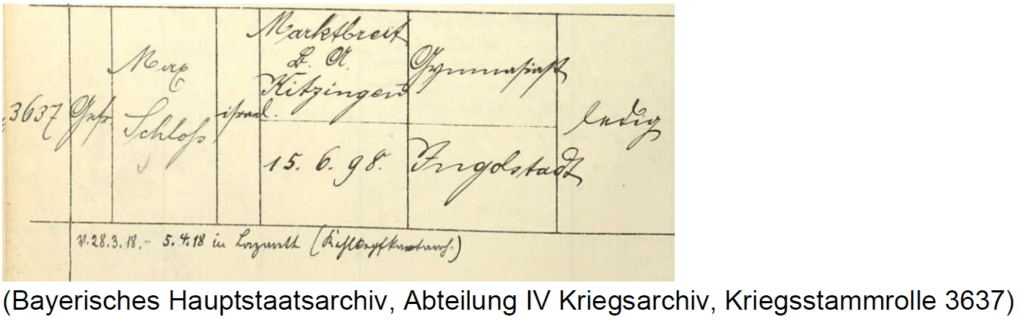 3637
Gefr.
Max
Schloß
israel.
Marktbreit
B. A.
Kitzingen
15. 6. 98.
Gymnasiast
Ingolstadt
ledig
v. 28.3.18.- 5.4.18 in Lazarett
(Bayerisches Hauptstaatsarchiv, Abteilung IV Kriegsarchiv, Kriegsstammrolle 3637)